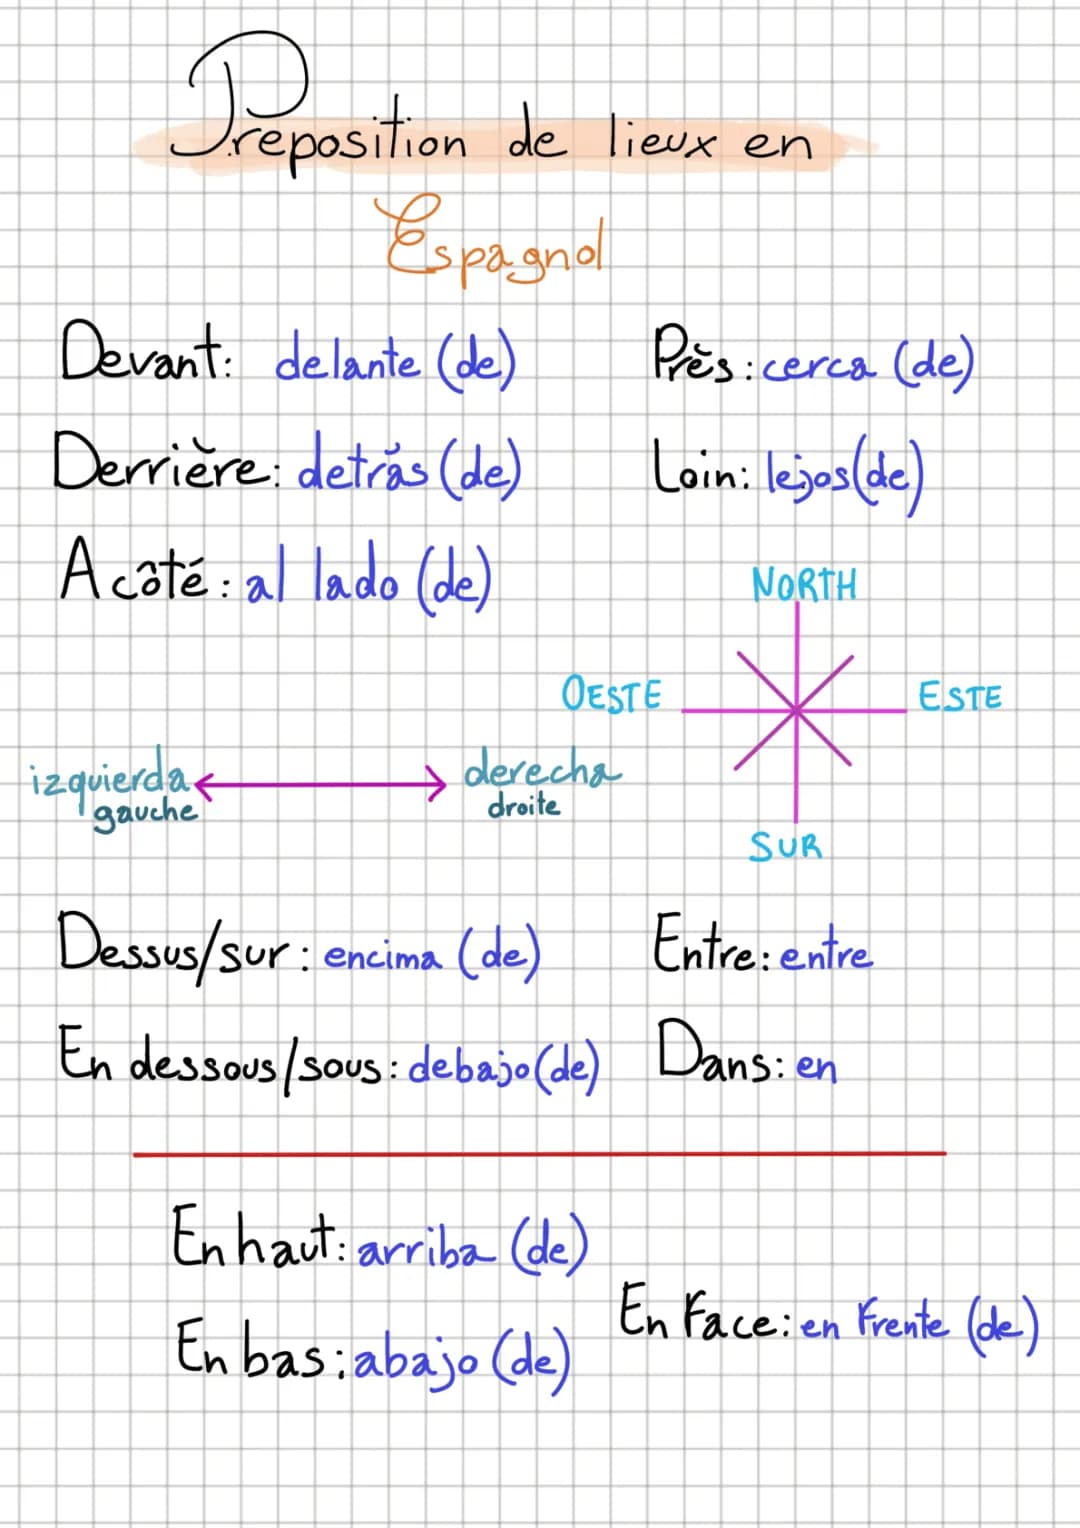 Preposition de lieux en
Espagnol
Devant: delante (de)
Près: cerca (de)
Derrière: detrás (de)
Loin: lejos (de)
A côté: al lado (de)
NORTH
OESTE
ESTE
izquierda
gauche
derecha
droite
SUR
Dessus/sur: encima (de)
Entre: entre
En dessous/sous: debajo (de)
Dans: en
En haut: arriba (de)
En Face: en Frente (de)
En bas: abajo (de)